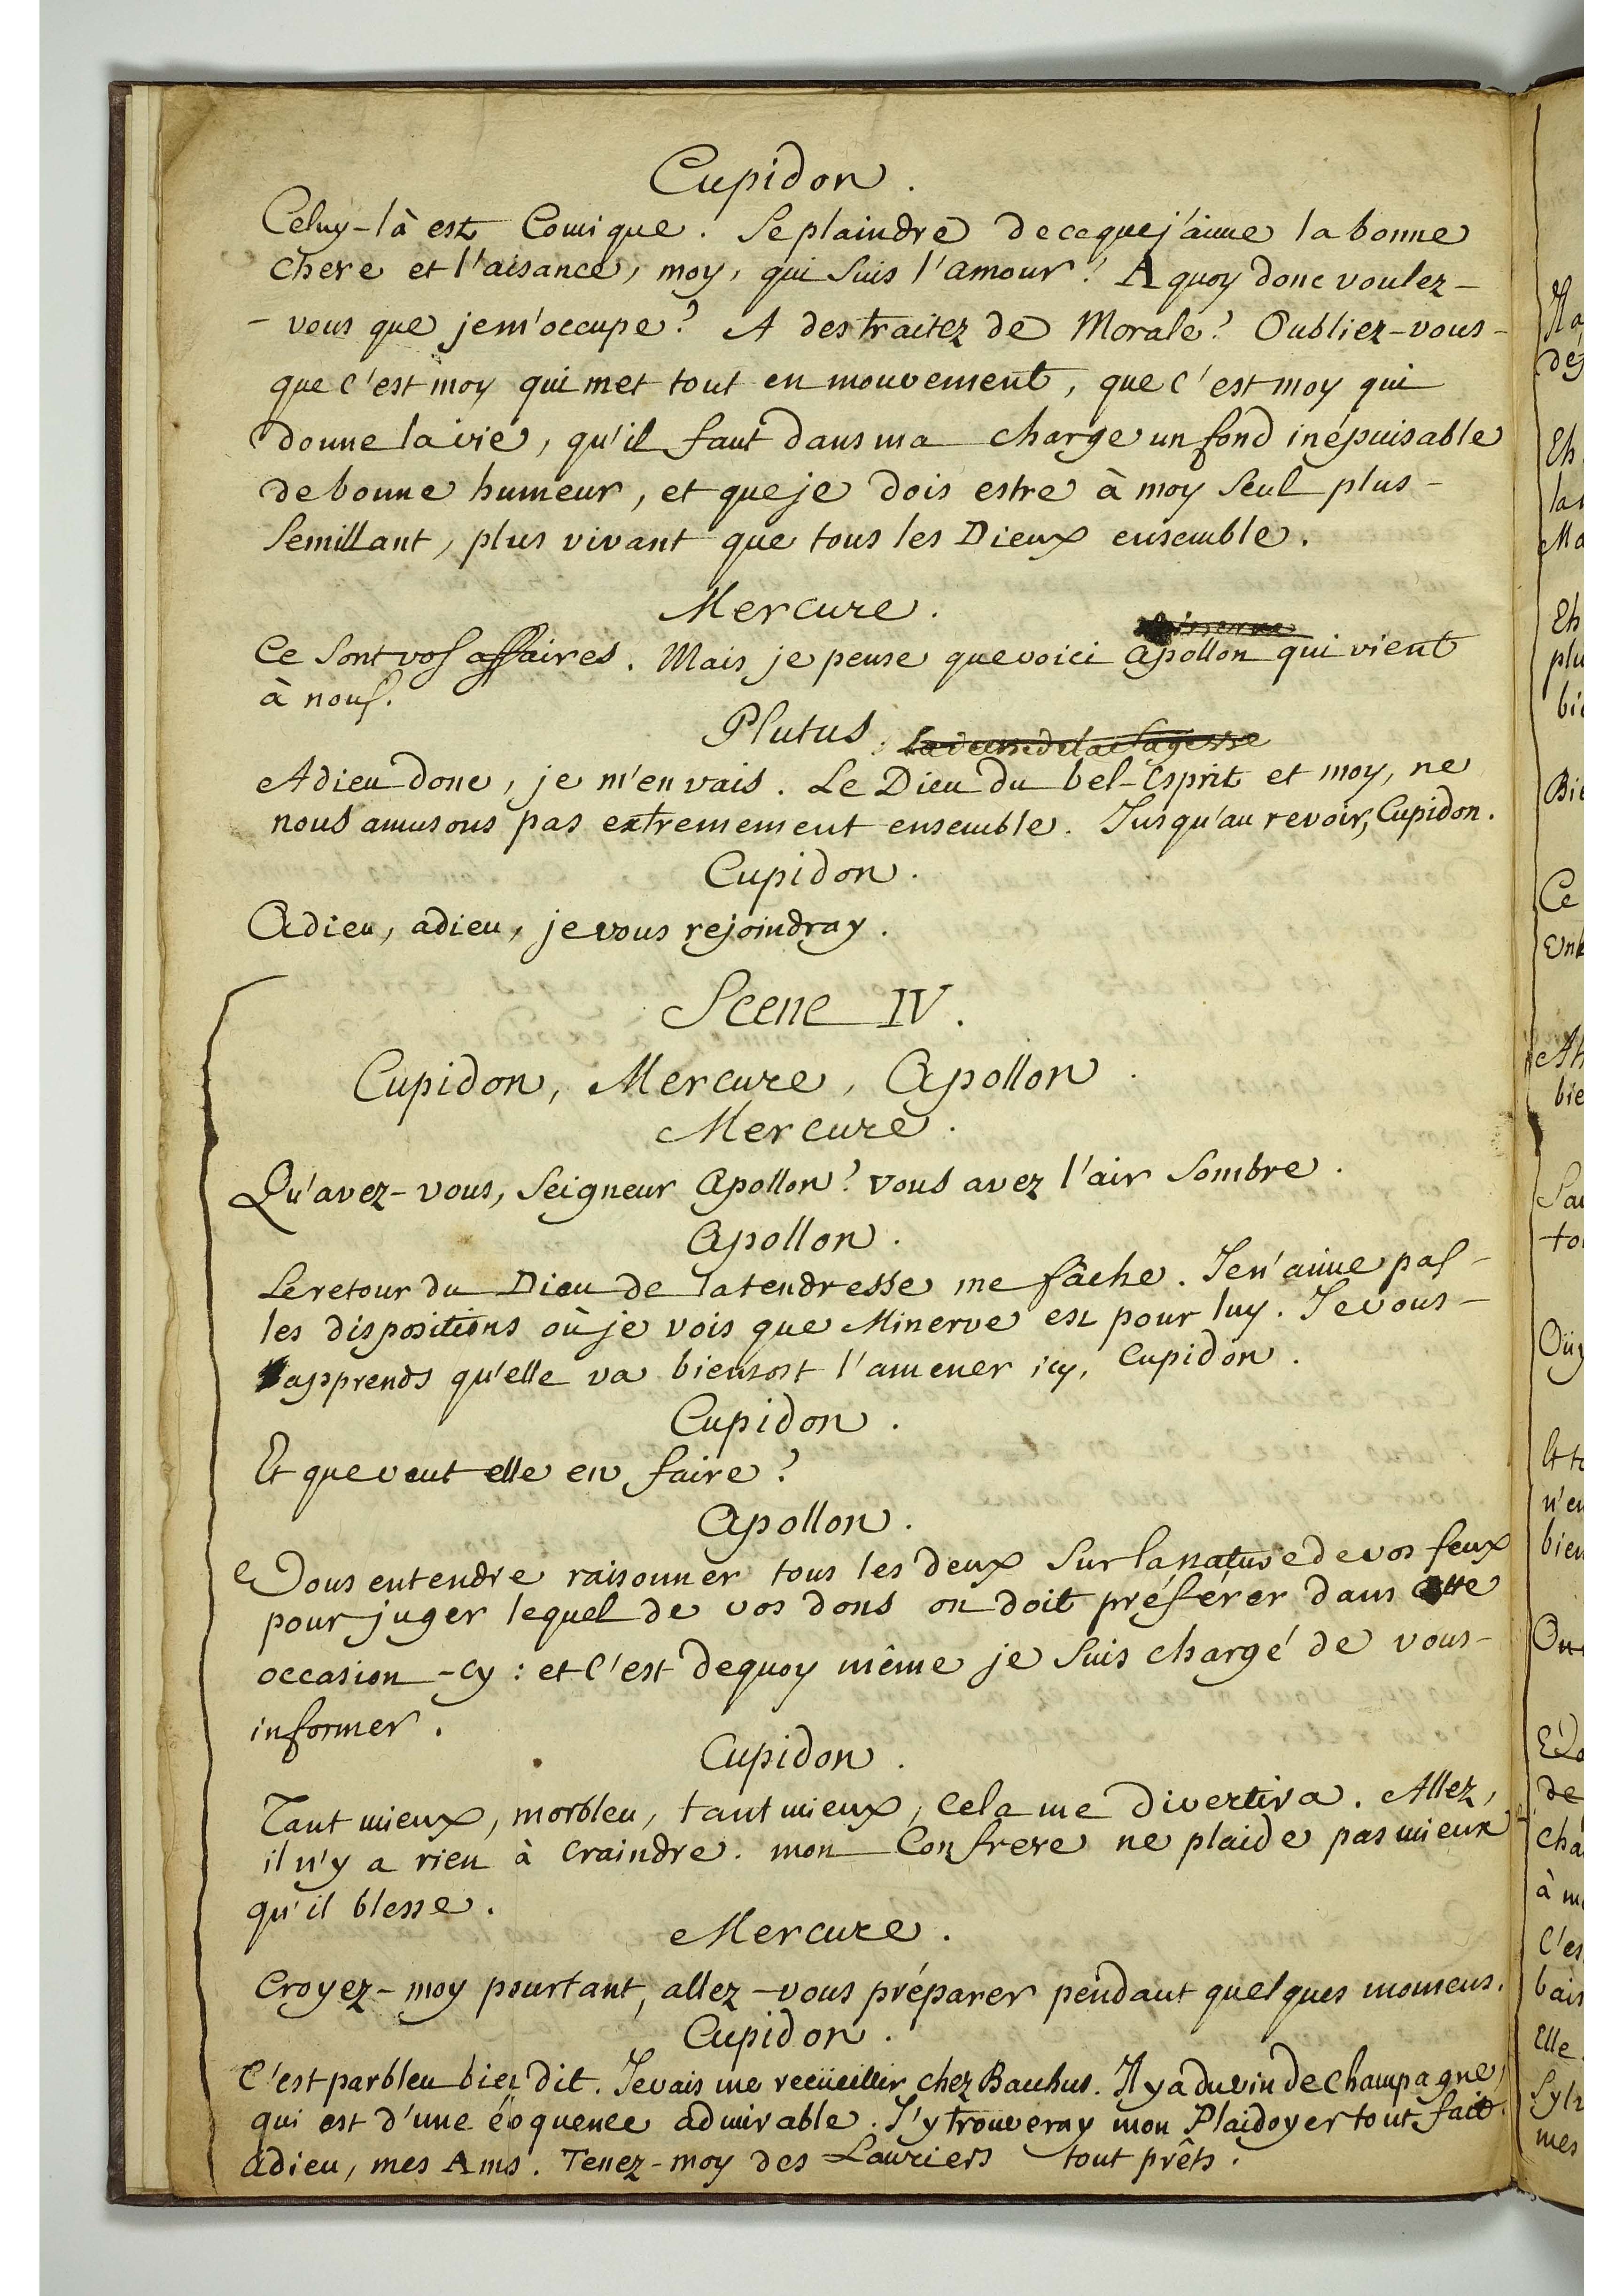 Cupidon.
Celuy-là est Comique. Se plaindre de ce que j'aime la bonne
chere et l'aisance, moy, qui suis l'amour! A quoy donc voulez-
- vous que je m'occupe? A des traitez de Morale? Oubliez-vous-
que c'est moy qui met tout en mouvement, que c'est moy qui
donne la vie, qu'il faut dans ma charge un fond inépuisable
de bonne humeur, et que je dois estre à moy seul plus-
semillant, plus vivant que tous les Dieux ensemble.
Mercure.
Ce sont vos affaires. Mais je pense que voici apollon qui vient
à nous.
Plutus.
la deesse de la sagesse
Adieu donc, je m'en vais. Le Dieu du bel-Esprit et moy, ne
nous amusons pas extremement ensemble. Jusqu'au revoir, Cupidon.
Cupidon.
Adieu, adieu, je vous rejoindray.
Scene IV.
Cupidon, Mercure, Apollon.
Mercure.
Qu'avez-vous, Seigneur Apollon? vous avez l'air sombre.
Apollon.
Le retour du Dieu de la tendresse me fâche. Je n'aime pas-
les dispositions où je vois que Minerve est pour luy. Je vous-
apprends qu'elle va bientost l'amener icy, Cupidon.
Cupidon.
Et que veut elle en faire?
Apollon.
Vous entendre raisonner tous les deux sur la nature de vos feux
pour juger lequel de vos dons on doit préférer dans cette
occasion-cy: et c'est dequoy même je suis chargé de vous-
informer.
Cupidon.
Tant mieux, morbleu, tant mieux, cela me divertira. Allez,
il n'y a rien à craindre. mon Confrere ne plaide pas mieux
qu'il blesse.
Mercure.
Croyez-moy pourtant, allez-vous préparer pendant quelques momens.
Cupidon.
C'est parbleu bien dit. Je vais me recüeillir chez Bacchus. Il y a du vin de Champagne,
qui est d'une éloquence admirable. J'y trouveray mon Plaidoyer tout fait.
adieu, mes Amis. Tenez-moy des Lauriers tout prêts.